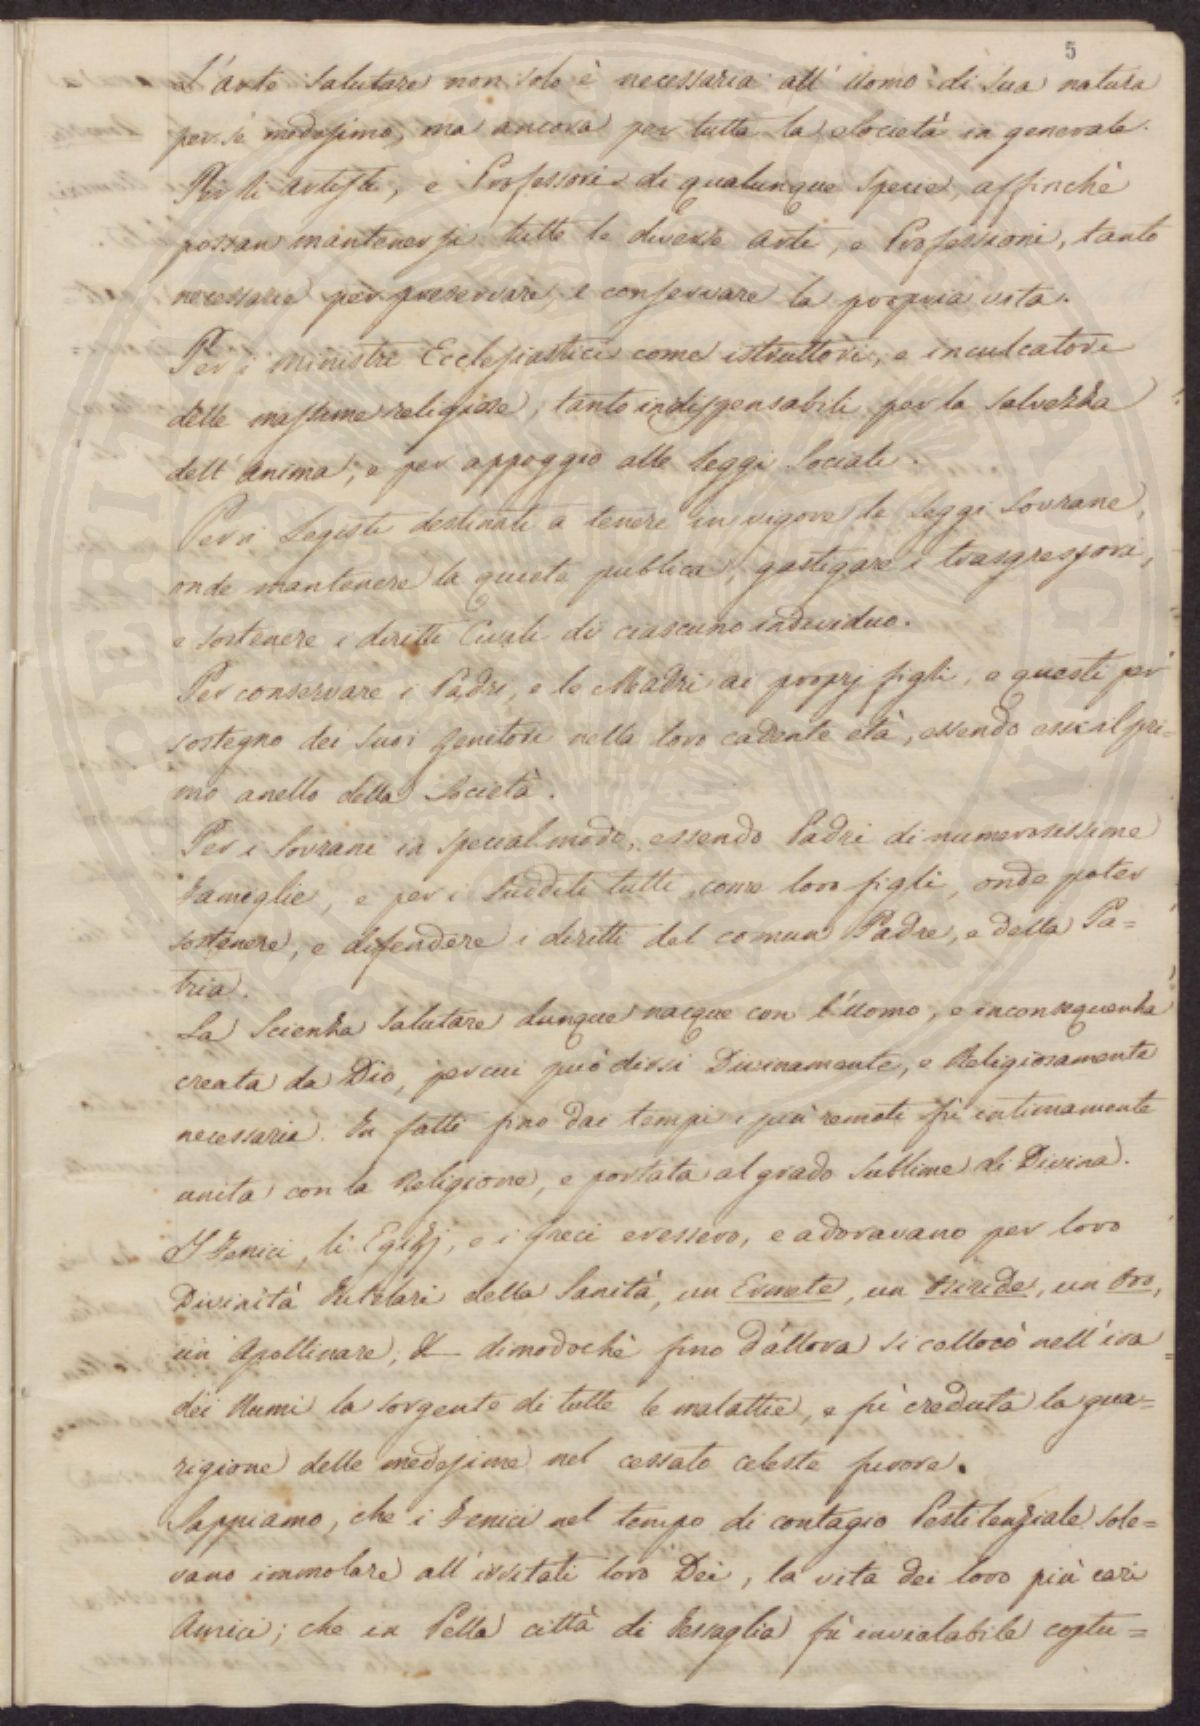 5
L'arte salutare non solo è necessaria all' Uomo di sua natura
per sè medesimo, ma ancora per tutta la Società in generale.
Per li Artisti, e Professori di qualunque specie, affinchè
possan mantenersi tutte le diverse arti, e Professioni, tanto
necessarie per preservare, e conservare la propria vita.
Per i Ministri Ecclesiastici come istruttori, e inculcatori
delle massime religiose, tanto indispensabili per la salvezza
dell' anima, e per appoggio alle Leggi Sociali.
Per i Legisti destinati a tenere in vigore le Leggi Sovrane,
onde mantenere la quiete publica, gastigare i trasgressori,
e sostenere i diritti Civili di ciascuno individuo.
Per conservare i Padri, e le Madri ai proprj figli, e questi per
sostegno dei suoi genitori nella loro cadente età, essendo essi il pri=
mo anello della Società.
Per i Sovrani in special modo, essendo Padri di numerosissime
Famiglie, e per i Sudditi tutti, come loro figli, onde poter
sostenere, e difendere i diritti del comun Padre, e della Pa=
tria.
La Scienza salutare dunque nacque con l'Uomo, e in conseguenza
creata da Dio, per cui può dirsi Divinamente, e Religiosamente
necessaria. In fatti fino dai tempi i più remoti fù intimamente
unita con la Religione, e portata al grado sublime di Divina.
I Fenici, li Egizj, e i Greci eressero, e adoravano per loro
Divinità Tutelari della Sanità, un Ermete, un Osiride, un Oro,
un Apollinare, & dimodochè fino d'allora si collocò nell' ira
dei Numi la sorgente di tutte le malattie, e fù creduta la gua=
rigione delle medesime nel cessato celeste furore.
Sappiamo, che i Fenici nel tempo di contagio Pestilenziale sole=
vano immolare all' irritati loro Dei, la vita dei loro più cari
Amici; che in Pella città di Tessaglia fù inviolabile costu=